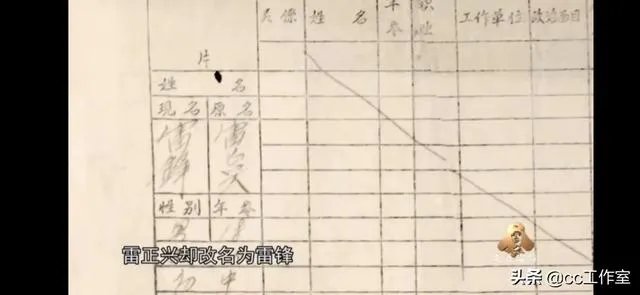 关系 姓名 年龄 职业 工作单位 政治面目
片
姓名
现名 原名
雷锋 雷正兴
性别 年龄
男
雷正兴却改名为雷锋
初中
头条 @cc工作室